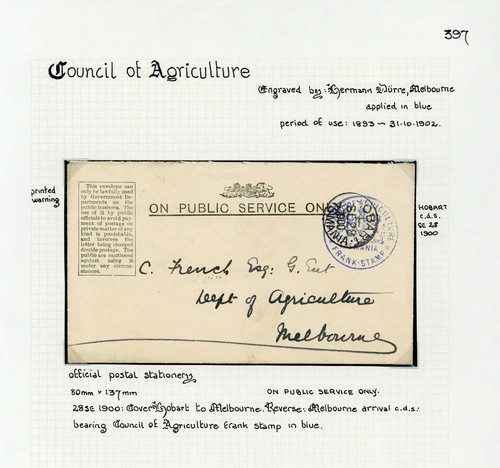 397
Council of Agriculture
Engraved by: Hermann Dürre, Melbourne
applied in blue
period of use: 1893 – 31-10-1902.
printed
warning
This envelope can
only be lawfully used
by Government De-
partments on the
public business. The
use of it by public
officials to avoid pay-
ment of postage on
private matter of any
kind is punishable,
and involves the
letter being charged
double postage. The
public are cautioned
against using it
under any circum-
stances.
ON PUBLIC SERVICE ON
HOBART
TASMANIA
FRANK-STAMP
HOBART
c.d.s.
SE 28
1900
C. French Esq: G. Ent
Dept of Agriculture
Melbourne
official postal stationery
80mm × 137mm
ON PUBLIC SERVICE ONLY.
28 SE 1900: Cover Hobart to Melbourne. Reverse: Melbourne arrival c.d.s:
bearing Council of Agriculture frank stamp in blue.